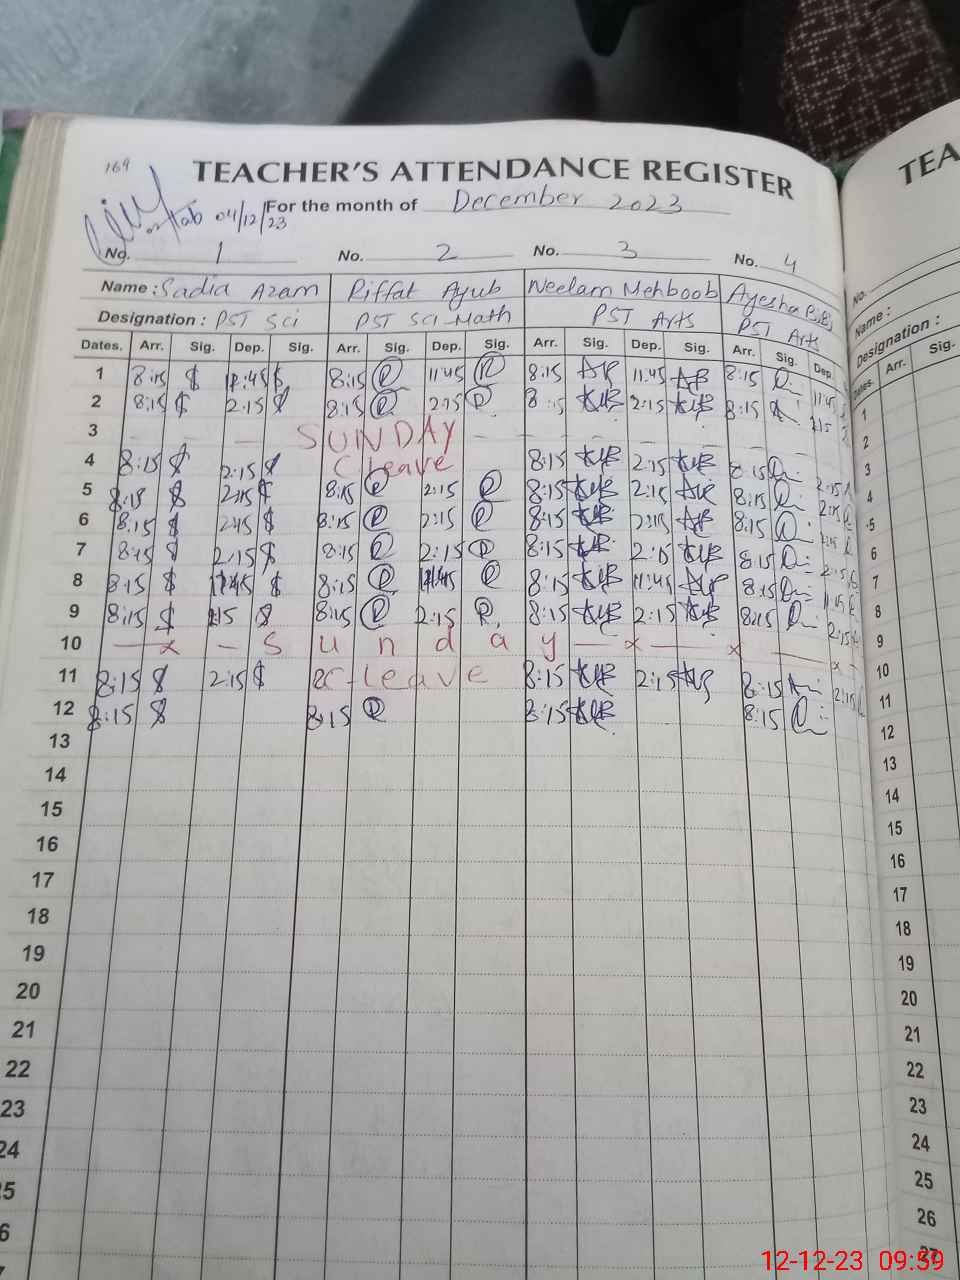 169
TEACHER'S ATTENDANCE REGISTER TEA
04/12/23 For the month of December 2023
No. 1 No. 2 No. 3 No. 4 No.
Name : Sadia Azam Riffat Ayub Neelam Mehboob Ayesha Bibi Name :
Designation : PST Sci PST Sci-Math PST Arts PST Arts Designation :
Dates. Arr. Sig. Dep. Sig. Arr. Sig. Dep. Sig. Arr. Sig. Dep. Sig. Arr. Sig. Dep. Dates. Arr. Sig.
1 8:15 11:45 8:15 11:45 8:15 11:45 8:15 11:45 1
2 8:15 2:15 8:15 2:15 8:15 2:15 8:15 2:15 2
3 SUNDAY 3
4 8:15 2:15 C leave 8:15 2:15 8:15 2:15 4
5 8:15 2:15 8:15 2:15 8:15 2:15 8:15 2:15 5
6 8:15 2:15 8:15 2:15 8:15 2:15 8:15 2:15 6
7 8:15 2:15 8:15 2:15 8:15 2:15 8:15 2:15 7
8 8:15 11:45 8:15 11:45 8:15 11:45 8:15 11:45 8
9 8:15 2:15 8:15 2:15 8:15 2:15 8:15 2:15 9
10 — x — S u n d a y — x — x — x — 10
11 8:15 2:15 C leave 8:15 2:15 8:15 2:15 11
12 8:15 8:15 8:15 8:15 12
13 13
14 14
15 15
16 16
17 17
18 18
19 19
20 20
21 21
22 22
23 23
24 24
5 25
6 26
27
12-12-23 09:59